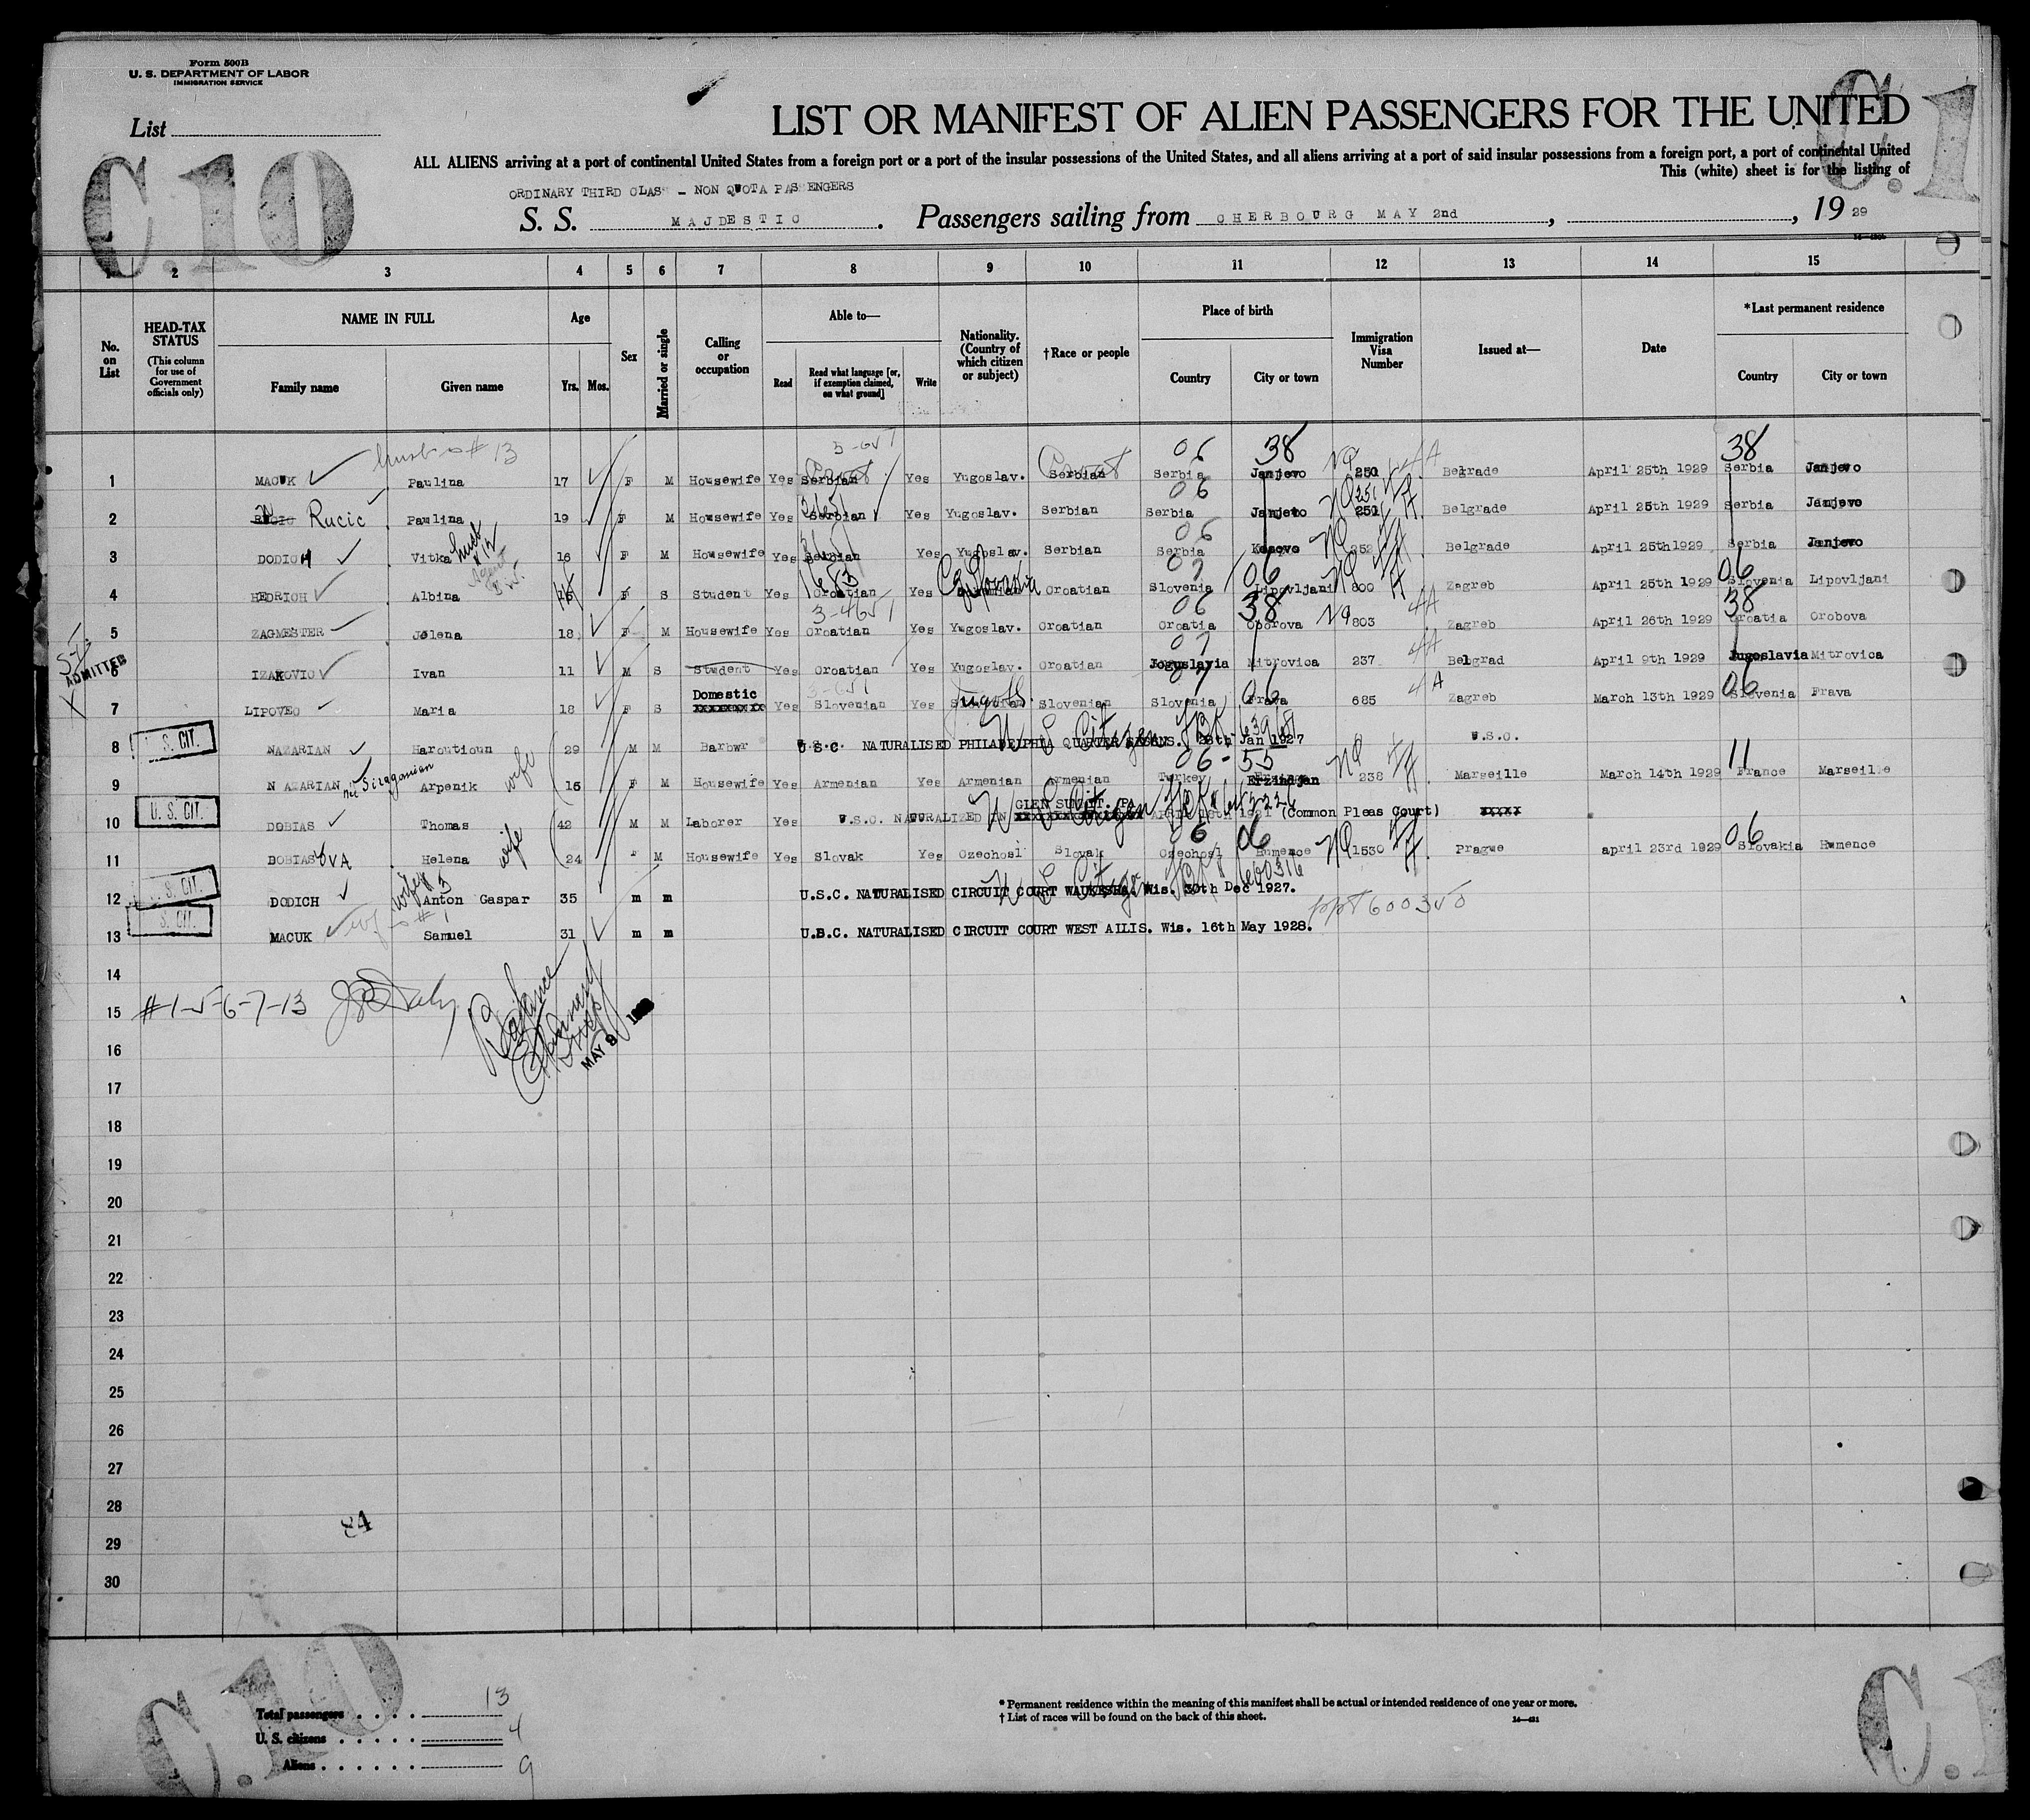 Form 500B
U. S. DEPARTMENT OF LABOR
IMMIGRATION SERVICE
List
C.10
C.1
LIST OR MANIFEST OF ALIEN PASSENGERS FOR THE UNITED
ALL ALIENS arriving at a port of continental United States from a foreign port or a port of the insular possessions of the United States, and all aliens arriving at a port of said insular possessions from a foreign port, a port of continental United
This (white) sheet is for the listing of
ORDINARY THIRD CLASS - NON QUOTA PASSENGERS
S. S. MAJDESTIC. Passengers sailing from CHERBOURG MAY 2nd, , 19 29
1 2 3 4 5 6 7 8 9 10 11 12 13 14 15
No. on List
HEAD-TAX STATUS (This column for use of Government officials only)
NAME IN FULL
Family name Given name
Age
Yrs. Mos.
Sex
Married or single
Calling or occupation
Able to—
Read
Read what language [or, if exemption claimed, on what ground]
Write
Nationality. (Country of which citizen or subject)
†Race or people
Place of birth
Country City or town
Immigration Visa Number
Issued at—
Date
*Last permanent residence
Country City or town
husb is # 13
1 MACUK Paulina 17 F M Housewife Yes Serbian Yes Yugoslav. Serbian Serbia Janjevo 250 Belgrade April 25th 1929 Serbia Janjevo
2 Rucic Paulina 19 F M Housewife Yes Serbian Yes Yugoslav. Serbian Serbia Janjevo 251 Belgrade April 25th 1929 Serbia Janjevo
3 DODICH Vitka 16 F M Housewife Yes Serbian Yes Yugoslav. Serbian Serbia Kosovo 252 Belgrade April 25th1929 Serbia Janjevo
4 HEDRICH Albina F S Student Yes Croatian Yes Croatian Slovenia Lipovljani 800 Zagreb April 25th 1929 Slovenia Lipovljani
5 ZAGMESTER Jelena 18 F M Housewife Yes Croatian Yes Yugoslav. Croatian Croatia Oborova 803 Zagreb April 26th 1929 Croatia Orobova
ADMITTED
6 IZAKOVIC Ivan 11 M S Student Yes Croatian Yes Yugoslav. Croatian Jogoslavia Mitrovica 237 Belgrad April 9th 1929 Jugoslavia Mitrovica
7 LIPOVEC Maria 18 F S Domestic Yes Slovenian Yes Slovenian Slovenia Prava 685 Zagreb March 13th 1929 Slovenia Prava
8 U. S. CIT. NAZARIAN Haroutioun 29 M M Barbwr U.S.C. NATURALISED PHILADELPHIA QUARTER SESSNS. 28th Jan 1927 U.S.O.
9 NAZARIAN née Siragonian Arpenik wife 15 F M Housewife Yes Armenian Yes Armenian Armenian Turkey Erzindjan 238 Marseille March 14th 1929 France Marseille
10 U. S. CIT. DOBIAS Thomas 42 M M Laborer Yes U.S.C. NATURALIZED IN GLEN SUMMIT. PA. (Common Pleas Court) XXXXX
11 DOBIASOVA Helena wife 24 F M Housewife Yes Slovak Yes Czechosl Slovak Czechosl Humence 1530 Prague april 23rd 1929 Slovakia Humence
12 U. S. CIT. DODICH Anton Gaspar 35 m m U.S.C. NATURALISED CIRCUIT COURT WAUKESHA. Wis. 30th Dec 1927.
13 S. CIT. MACUK Samuel 31 m m U.B.C. NATURALISED CIRCUIT COURT WEST AILIS. Wis. 16th May 1928.
ppt 600350
14
15 #1-5-6-7-13
MAY 8
16
17
18
19
20
21
22
23
24
25
26
27
28
84
29
30
C.10
Total passengers 13
U. S. citizens 4
Aliens 9
* Permanent residence within the meaning of this manifest shall be actual or intended residence of one year or more.
† List of races will be found on the back of this sheet.
C.1